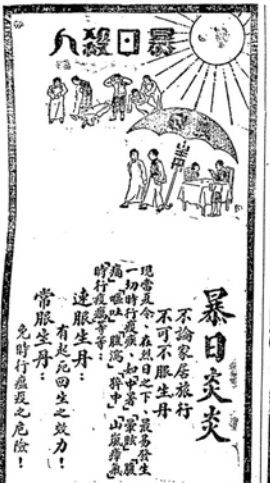 暴日殺人
生丹
暴日炎炎
不論家居旅行
不可不服生丹
現當夏令、在烈日之下、最易發生
一切時行疫痰、如中暑「暈眩」「腹
痛」「嘔吐」「腹瀉」「猝中」「山嵐瘴氣」
時行疫癘等等:
速服生丹:
有起死回生之效力!
常服生丹:
免時行瘟疫之危險!